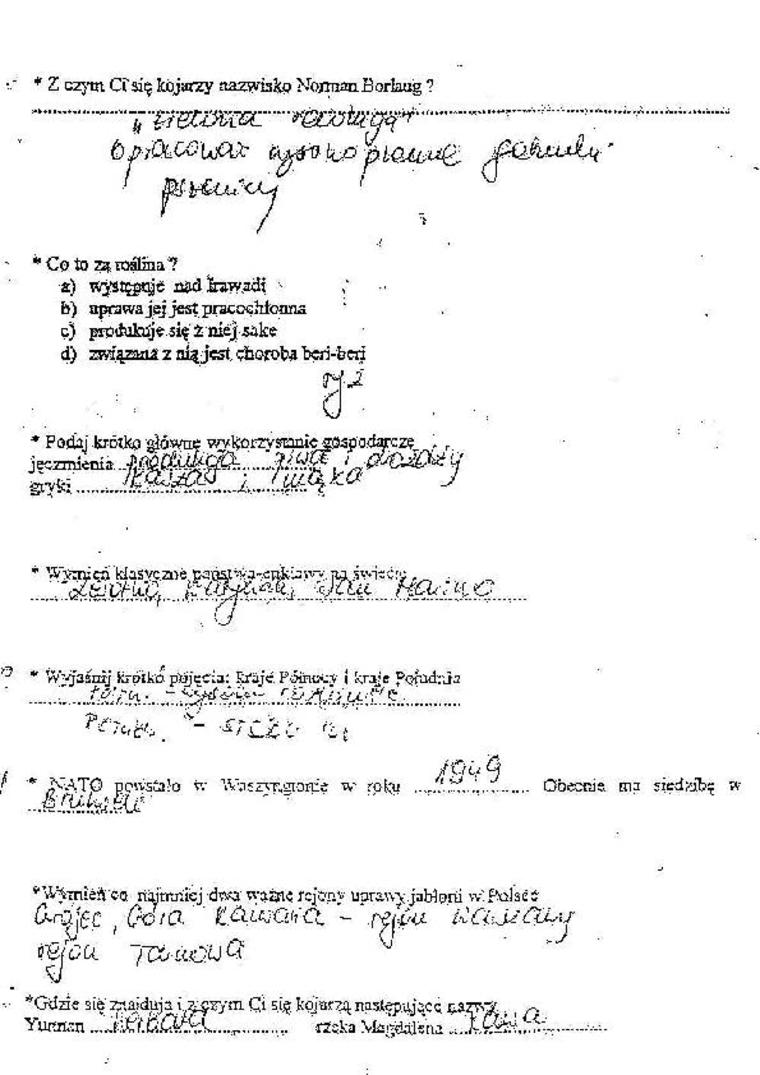 * Z czym Ci się kojarzy nazwisko Norman Borlaug ?
„zielona rewolucja"
opracował wysokoplenne gatunki
pszenicy
* Co to za roślina ?
a) występuje nad Irawadi
b) uprawa jej jest pracochłonna
c) produkuje się z niej sake
d) związana z nią jest choroba beri-beri
ryż
* Podaj krótko główne wykorzystanie gospodarcze
jęczmienia produkcja piwa i drożdży
gryki kasza i mąka
* Wymień klasyczne państwa-enklawy na świecie
Lesotho, Watykan, San Marino
* Wyjaśnij krótko pojęcia: kraje Północy i kraje Południa
Półn. - wysoko rozwinięte
Połudn. -
* NATO powstało w Waszyngtonie w roku 1949 Obecnie ma siedzibę w
Brukseli
*Wymień co najmniej dwa ważne rejony uprawy jabłoni w Polsce
Grójec, Góra Kalwaria - rejon Warszawy
rejon Tarnowa
*Gdzie się znajdują i z czym Ci się kojarzą następujące nazwy
Yunnan herbata rzeka Magdalena kawa